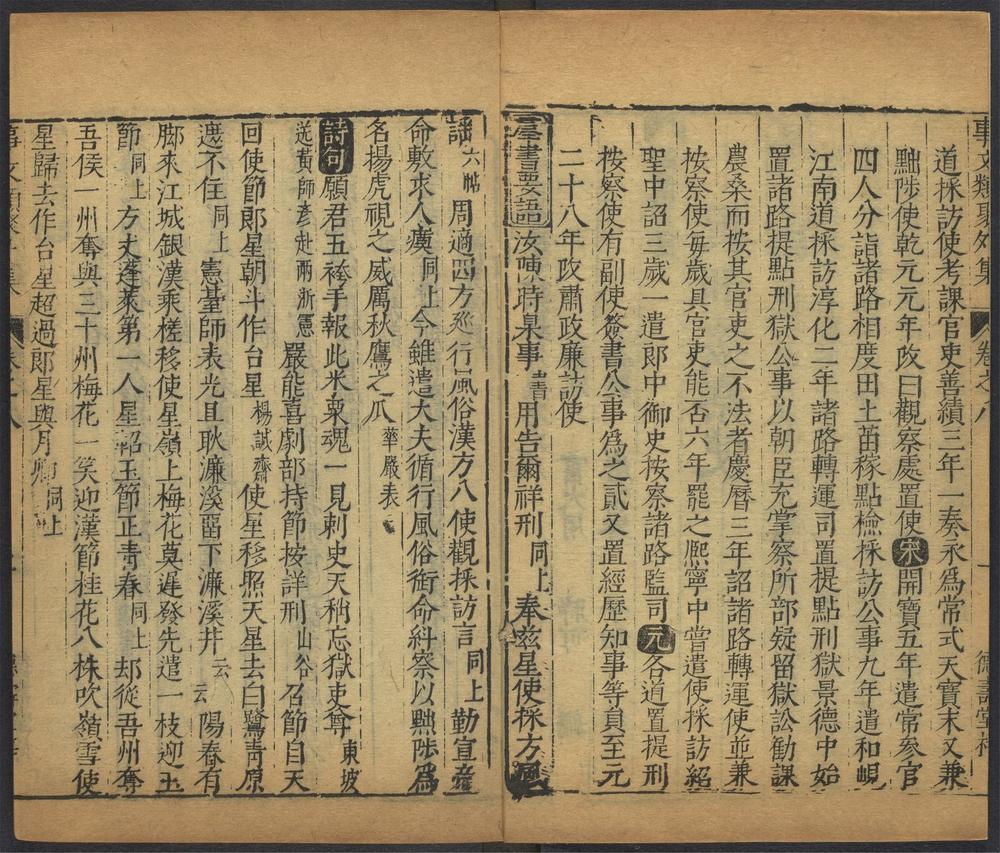 事文類聚外集 卷之八 一 德壽堂梓
道採訪使考課官吏善績三年一奏永爲常式天寶末又兼
黜陟使乾元元年改曰觀察處置使宋開寶五年遣常參官
四人分詣諸路相度田土苗稼點檢採訪公事九年遣和峴
江南道採訪淳化二年諸路轉運司置提點刑獄景德中始
置諸路提點刑獄公事以朝臣充掌察所部疑留獄訟勸課
農桑而按其官吏之不法者慶曆三年詔諸路轉運使並兼
按察使每歲具官吏能否六年罷之熈寧中嘗遣使採訪紹
聖中詔三歲一遣郎中御史按察諸路監司元各道置提刑
按察使有副使簽書公事爲之貳又置經歷知事等員至元
二十八年改肅政廉訪使
羣書要語汝陳時臬事書用告爾祥刑同上奉兹星使採方風
謡六帖周適四方廵行風俗漢方八使觀採訪言同上勤宣
命敷求人瘼同上今雖遣大夫循行風俗銜命糾察以黜陟爲
名揚虎視之威厲秋鷹之爪華嚴表
詩句願君五袴手報此米粟魂一見刺史天稍忘獄吏尊東坡
送黄師彥赴兩浙憲嚴能喜劇部持節按詳刑山谷召節自天
回使節郎星朝斗作台星楊誠齋使星移照天星去白鷺青原
遮不住同上憲臺師表光且耿濂溪畱下濂溪井云云陽春有
脚來江城銀漢乘槎移使星嶺上梅花莫遲發先遣一枝迎玉
節同上方丈蓬萊第一人星軺玉節正青春同上却從吾州奪
吾侯一州奪與三十州梅花一笑迎漢節桂花八株吹嶺雪使
星歸去作台星超過郎星與月卿同上